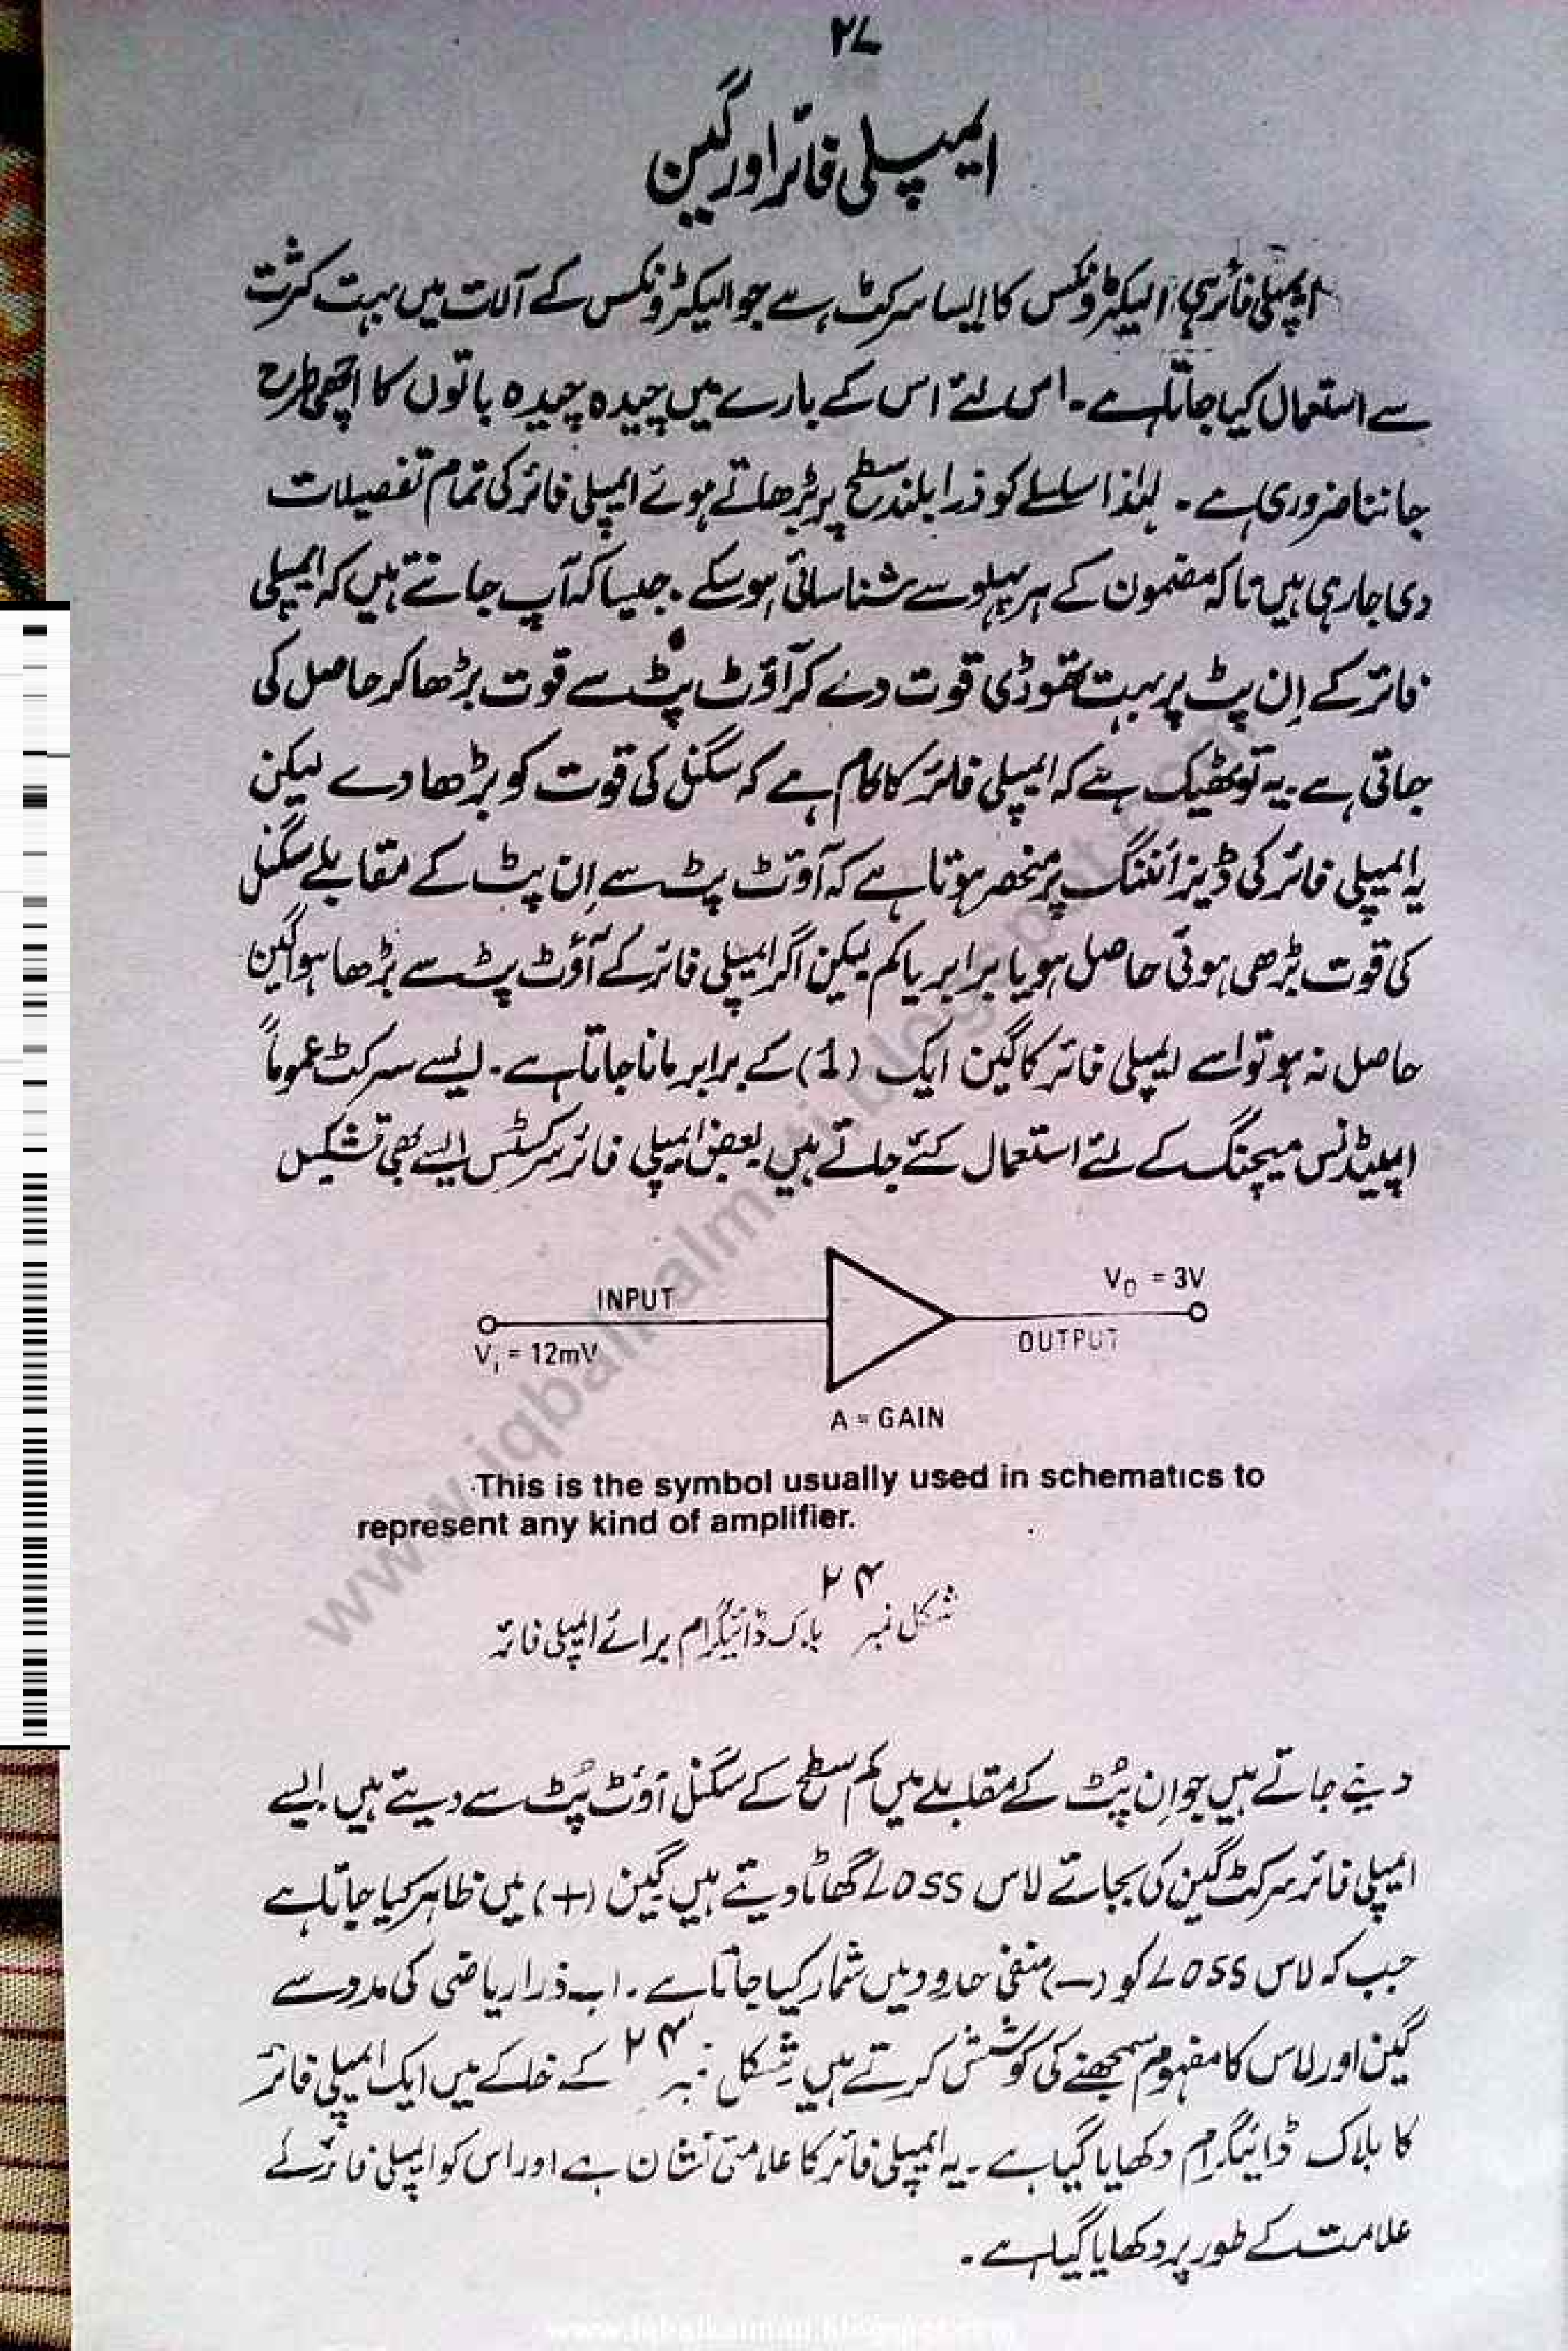 ۲۷
ایمپلی فائر اور گین
ایمپلی فائر ہی الیکٹرونکس کا ایسا سرکٹ ہے جو الیکٹرونکس کے آلات میں بہت کثرت
سے استعمال کیا جاتا ہے۔ اس لئے اس کے بارے میں چیدہ چیدہ باتوں کا اچھی طرح
جاننا ضروری ہے۔ لہٰذا سلسلے کو ذرا بلند سطح پر بڑھاتے ہوئے ایمپلی فائر کی تمام تفصیلات
دی جا رہی ہیں تاکہ مضمون کے ہر پہلو سے شناسائی ہو سکے۔ جیسا کہ آپ جانتے ہیں کہ ایمپلی
فائر کے اِن پٹ پر بہت تھوڑی قوت دے کر آؤٹ پٹ سے قوت بڑھا کر حاصل کی
جاتی ہے۔ یہ تو ٹھیک ہے کہ ایمپلی فائر کا کام ہے کہ سگنل کی قوت کو بڑھا دے لیکن
یہ ایمپلی فائر کی ڈیزائننگ پر منحصر ہوتا ہے کہ آؤٹ پٹ سے اِن پٹ کے مقابلے سگنل
کی قوت بڑھی ہوئی حاصل ہو یا برابر یا کم لیکن اگر ایمپلی فائر کے آؤٹ پٹ سے بڑھا ہوا گین
حاصل نہ ہو تو اسے ایمپلی فائر کا گین ایک (1) کے برابر مانا جاتا ہے۔ ایسے سرکٹ عموماً
امپیڈنس میچنگ کے لئے استعمال کئے جاتے ہیں بعض ایمپلی فائر سرکٹس ایسے بھی تشکیل
INPUT
V<sub>i</sub> = 12mV
V<sub>O</sub> = 3V
OUTPUT
A = GAIN
This is the symbol usually used in schematics to
represent any kind of amplifier.
شکل نمبر ۲۴ بلاک ڈائیگرام برائے ایمپلی فائر
دیئے جاتے ہیں جو اِن پُٹ کے مقابلے میں کم سطح کے سگنل آؤٹ پُٹ سے دیتے ہیں ایسے
ایمپلی فائر سرکٹ گین کی بجائے لاس Loss گھاٹا دیتے ہیں گین (+) میں ظاہر کیا جاتا ہے
جب کہ لاس Loss کو (−) منفی حدود میں شمار کیا جاتا ہے۔ اب ذرا ریاضی کی مدد سے
گین اور لاس کا مفہوم سمجھنے کی کوشش کرتے ہیں شکل نمبر ۲۴ کے خاکے میں ایک ایمپلی فائر
کا بلاک ڈائیگرام دکھایا گیا ہے۔ یہ ایمپلی فائر کا علامتی نشان ہے اور اس کو ایمپلی فائر کے
علامت کے طور پر دکھایا گیا ہے۔
www.iqbalkalmati.blogspot.com